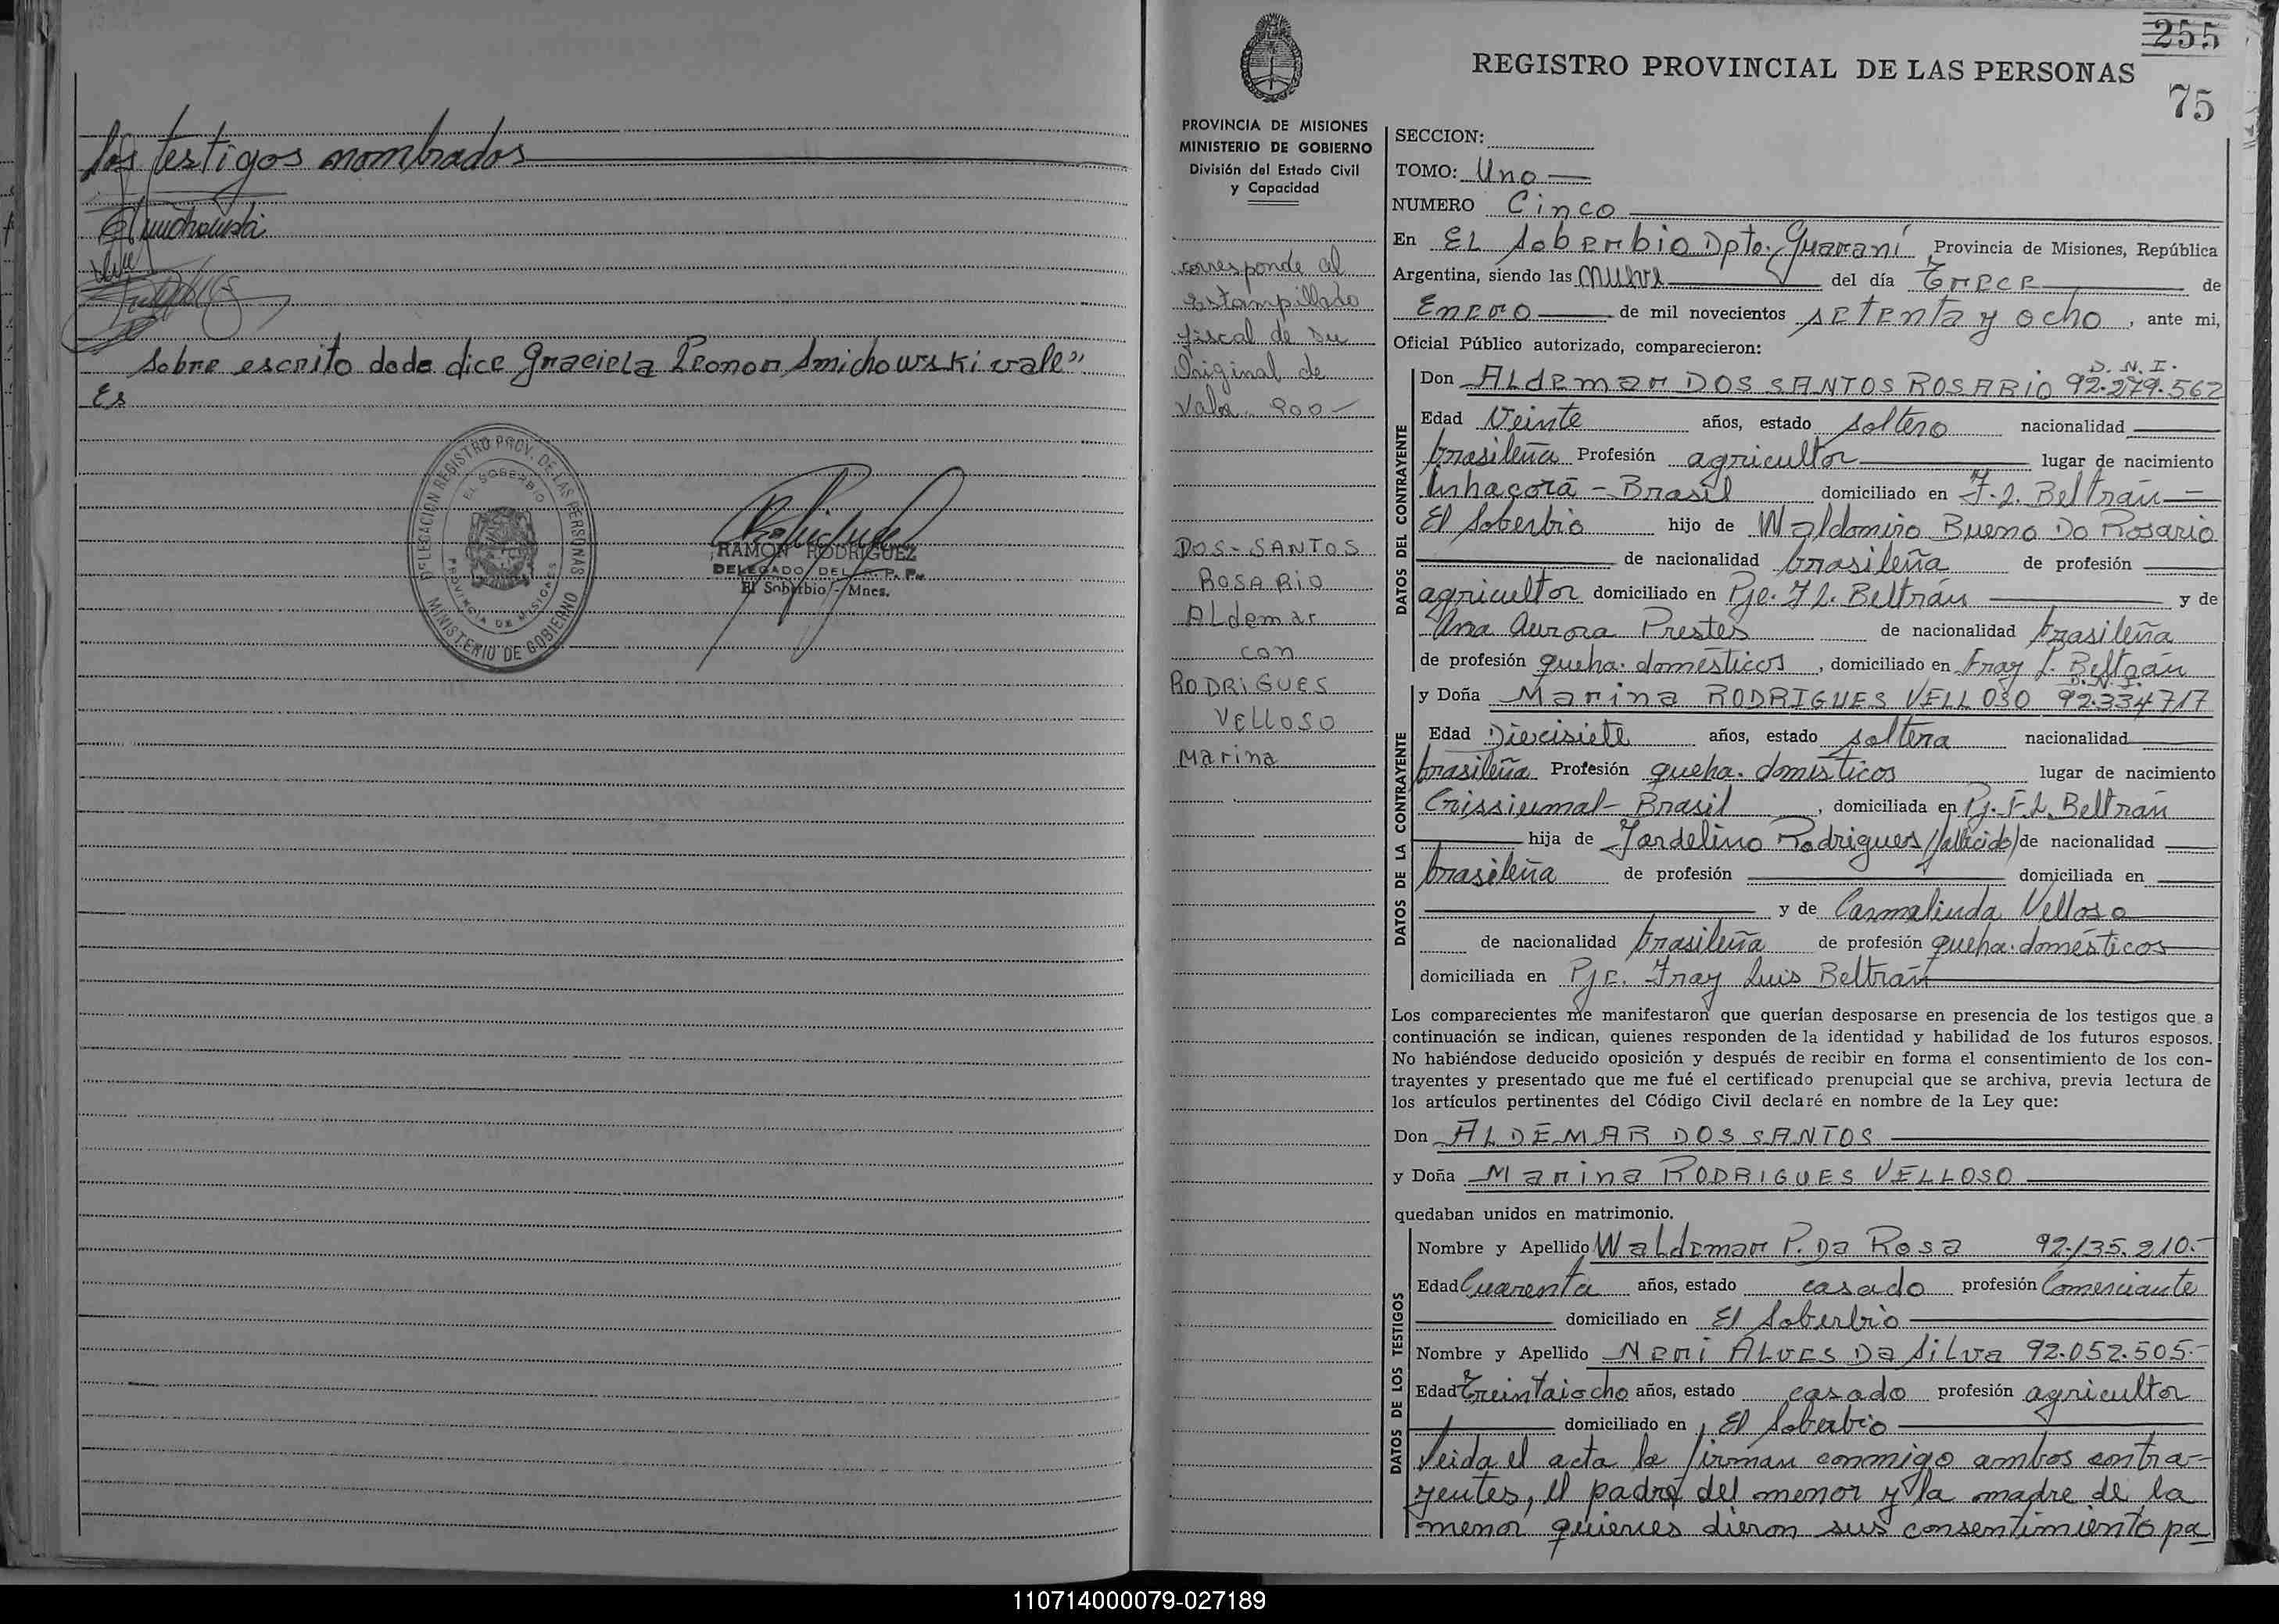 los testigos nombrados
Sobre escrito dode dice Graciela Leonor Smichowski vale"
Es
DELEGACION REGISTRO PROV. DE LAS PERSONAS
EL SOBERBIO
PROVINCIA DE MISIONES
MINISTERIO DE GOBIERNO
RAMON RODRIGUEZ
DELEGADO DEL R. P. P.
El Soberbio - Mnes.
255
REGISTRO PROVINCIAL DE LAS PERSONAS
75
PROVINCIA DE MISIONES
MINISTERIO DE GOBIERNO
División del Estado Civil
y Capacidad
corresponde al
Estampillado
fiscal de su
Original de
Valor 900-
DOS-SANTOS
ROSARIO
ALdemar
con
RODRIGUES
VELLOSO
Marina
SECCION:
TOMO: Uno
NUMERO Cinco
En EL Soberbio Dpto. Guaraní Provincia de Misiones, República
Argentina, siendo las nueve del día Trece de
Enero de mil novecientos setenta y ocho, ante mi,
Oficial Público autorizado, comparecieron:
DATOS DEL CONTRAYENTE
D.N.I.
Don ALdemar DOS SANTOS ROSARIO 92.279.562
Edad Veinte años, estado soltero nacionalidad
brasileña Profesión agricultor lugar de nacimiento
Inhacorá - Brasil domiciliado en F. L. Beltrán -
El Soberbio hijo de Waldomiro Bueno Do Rosario
de nacionalidad brasileña de profesión
agricultor domiciliado en Pje. F L. Beltrán y de
Ana Aurora Prestes de nacionalidad brasileña
de profesión queha. domésticos, domiciliado en Fray L. Beltrán
DATOS DE LA CONTRAYENTE
D.N.I.
y Doña Marina RODRIGUES VELLOSO 92.334717
Edad Diecisiete años, estado soltera nacionalidad
brasileña Profesión queha. domésticos lugar de nacimiento
Crissiumal - Brasil, domiciliada en Pj. F. L. Beltrán
hija de Jardelino Rodrigues (fallecido) de nacionalidad
brasileña de profesión domiciliada en
y de Carmalinda Velloso
de nacionalidad brasileña de profesión queha. domésticos
domiciliada en Pje. Fray Luis Beltrán
Los comparecientes me manifestaron que querían desposarse en presencia de los testigos que a
continuación se indican, quienes responden de la identidad y habilidad de los futuros esposos.
No habiéndose deducido oposición y después de recibir en forma el consentimiento de los con-
trayentes y presentado que me fué el certificado prenupcial que se archiva, previa lectura de
los artículos pertinentes del Código Civil declaré en nombre de la Ley que:
Don ALDEMAR DOS SANTOS
y Doña Marina RODRIGUES VELLOSO
quedaban unidos en matrimonio.
DATOS DE LOS TESTIGOS
Nombre y Apellido Waldemar P. Da Rosa 92.135.210.-
Edad Cuarenta años, estado casado profesión Comerciante
domiciliado en El Soberbio
Nombre y Apellido Neri ALves Da Silva 92.052.505.-
Edad Treintaiocho años, estado casado profesión agricultor
domiciliado en El Soberbio
Leida el acta la firman conmigo ambos contra-
yentes, el padre del menor y la madre de la
menor quienes dieron sus consentimiento pa
110714000079-027189